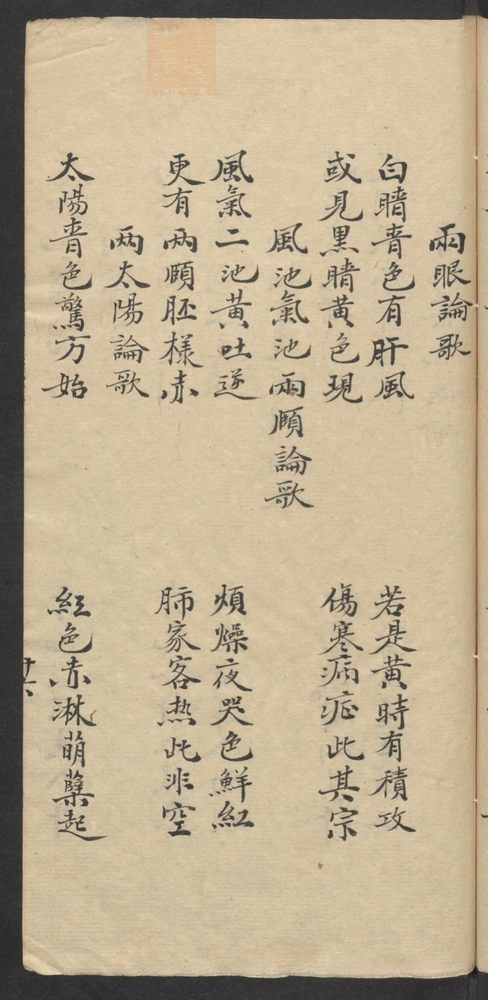 兩眼論歌
白睛青色有肝風
若是黃時有積攻
或見黑睛黃色現
傷寒病症此其宗
風池氣池兩頤論歌
風氣二池黃吐逆
煩燥夜哭色鮮紅
更有兩頤胚樣赤
肺家客熱此非空
两太陽論歌
太陽青色驚方始
紅色赤淋萌蘖起